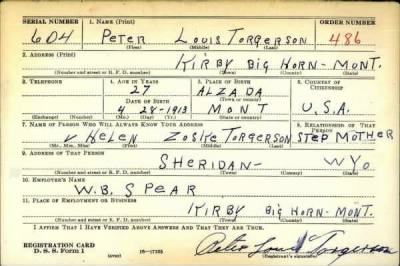 SERIAL NUMBER 1. NAME (Print) ORDER NUMBER
604 PETER LOUIS TORGERSON 486
(First) (Middle) (Last)
2. ADDRESS (Print)
KIRBY BIG HORN- MONT.
(Number and street or R. F. D. number) (Town) (County) (State)
3. TELEPHONE 4. AGE IN YEARS 5. PLACE OF BIRTH 6. COUNTRY OF CITIZENSHIP
27 ALZADA
DATE OF BIRTH (Town or county)
4 28-1913 MONT U.S.A.
(Exchange) (Number) (Mo.) (Day) (Yr.) (State or country)
7. NAME OF PERSON WHO WILL ALWAYS KNOW YOUR ADDRESS 8. RELATIONSHIP OF THAT PERSON
HELEN ZOSKE TORGERSON STEP MOTHER
(Mr., Mrs., Miss) (First) (Middle) (Last)
9. ADDRESS OF THAT PERSON
SHERIDAN- WYO
(Number and street or R. F. D. number) (Town) (County) (State)
10. EMPLOYER'S NAME
W.B. SPEAR
11. PLACE OF EMPLOYMENT OR BUSINESS
KIRBY BIG HORN- MONT.
(Number and street or R. F. D. number) (Town) (County) (State)
I AFFIRM THAT I HAVE VERIFIED ABOVE ANSWERS AND THAT THEY ARE TRUE.
REGISTRATION CARD
D. S. S. Form 1 16-17105 Louis Torgerson
(Registrant's signature)